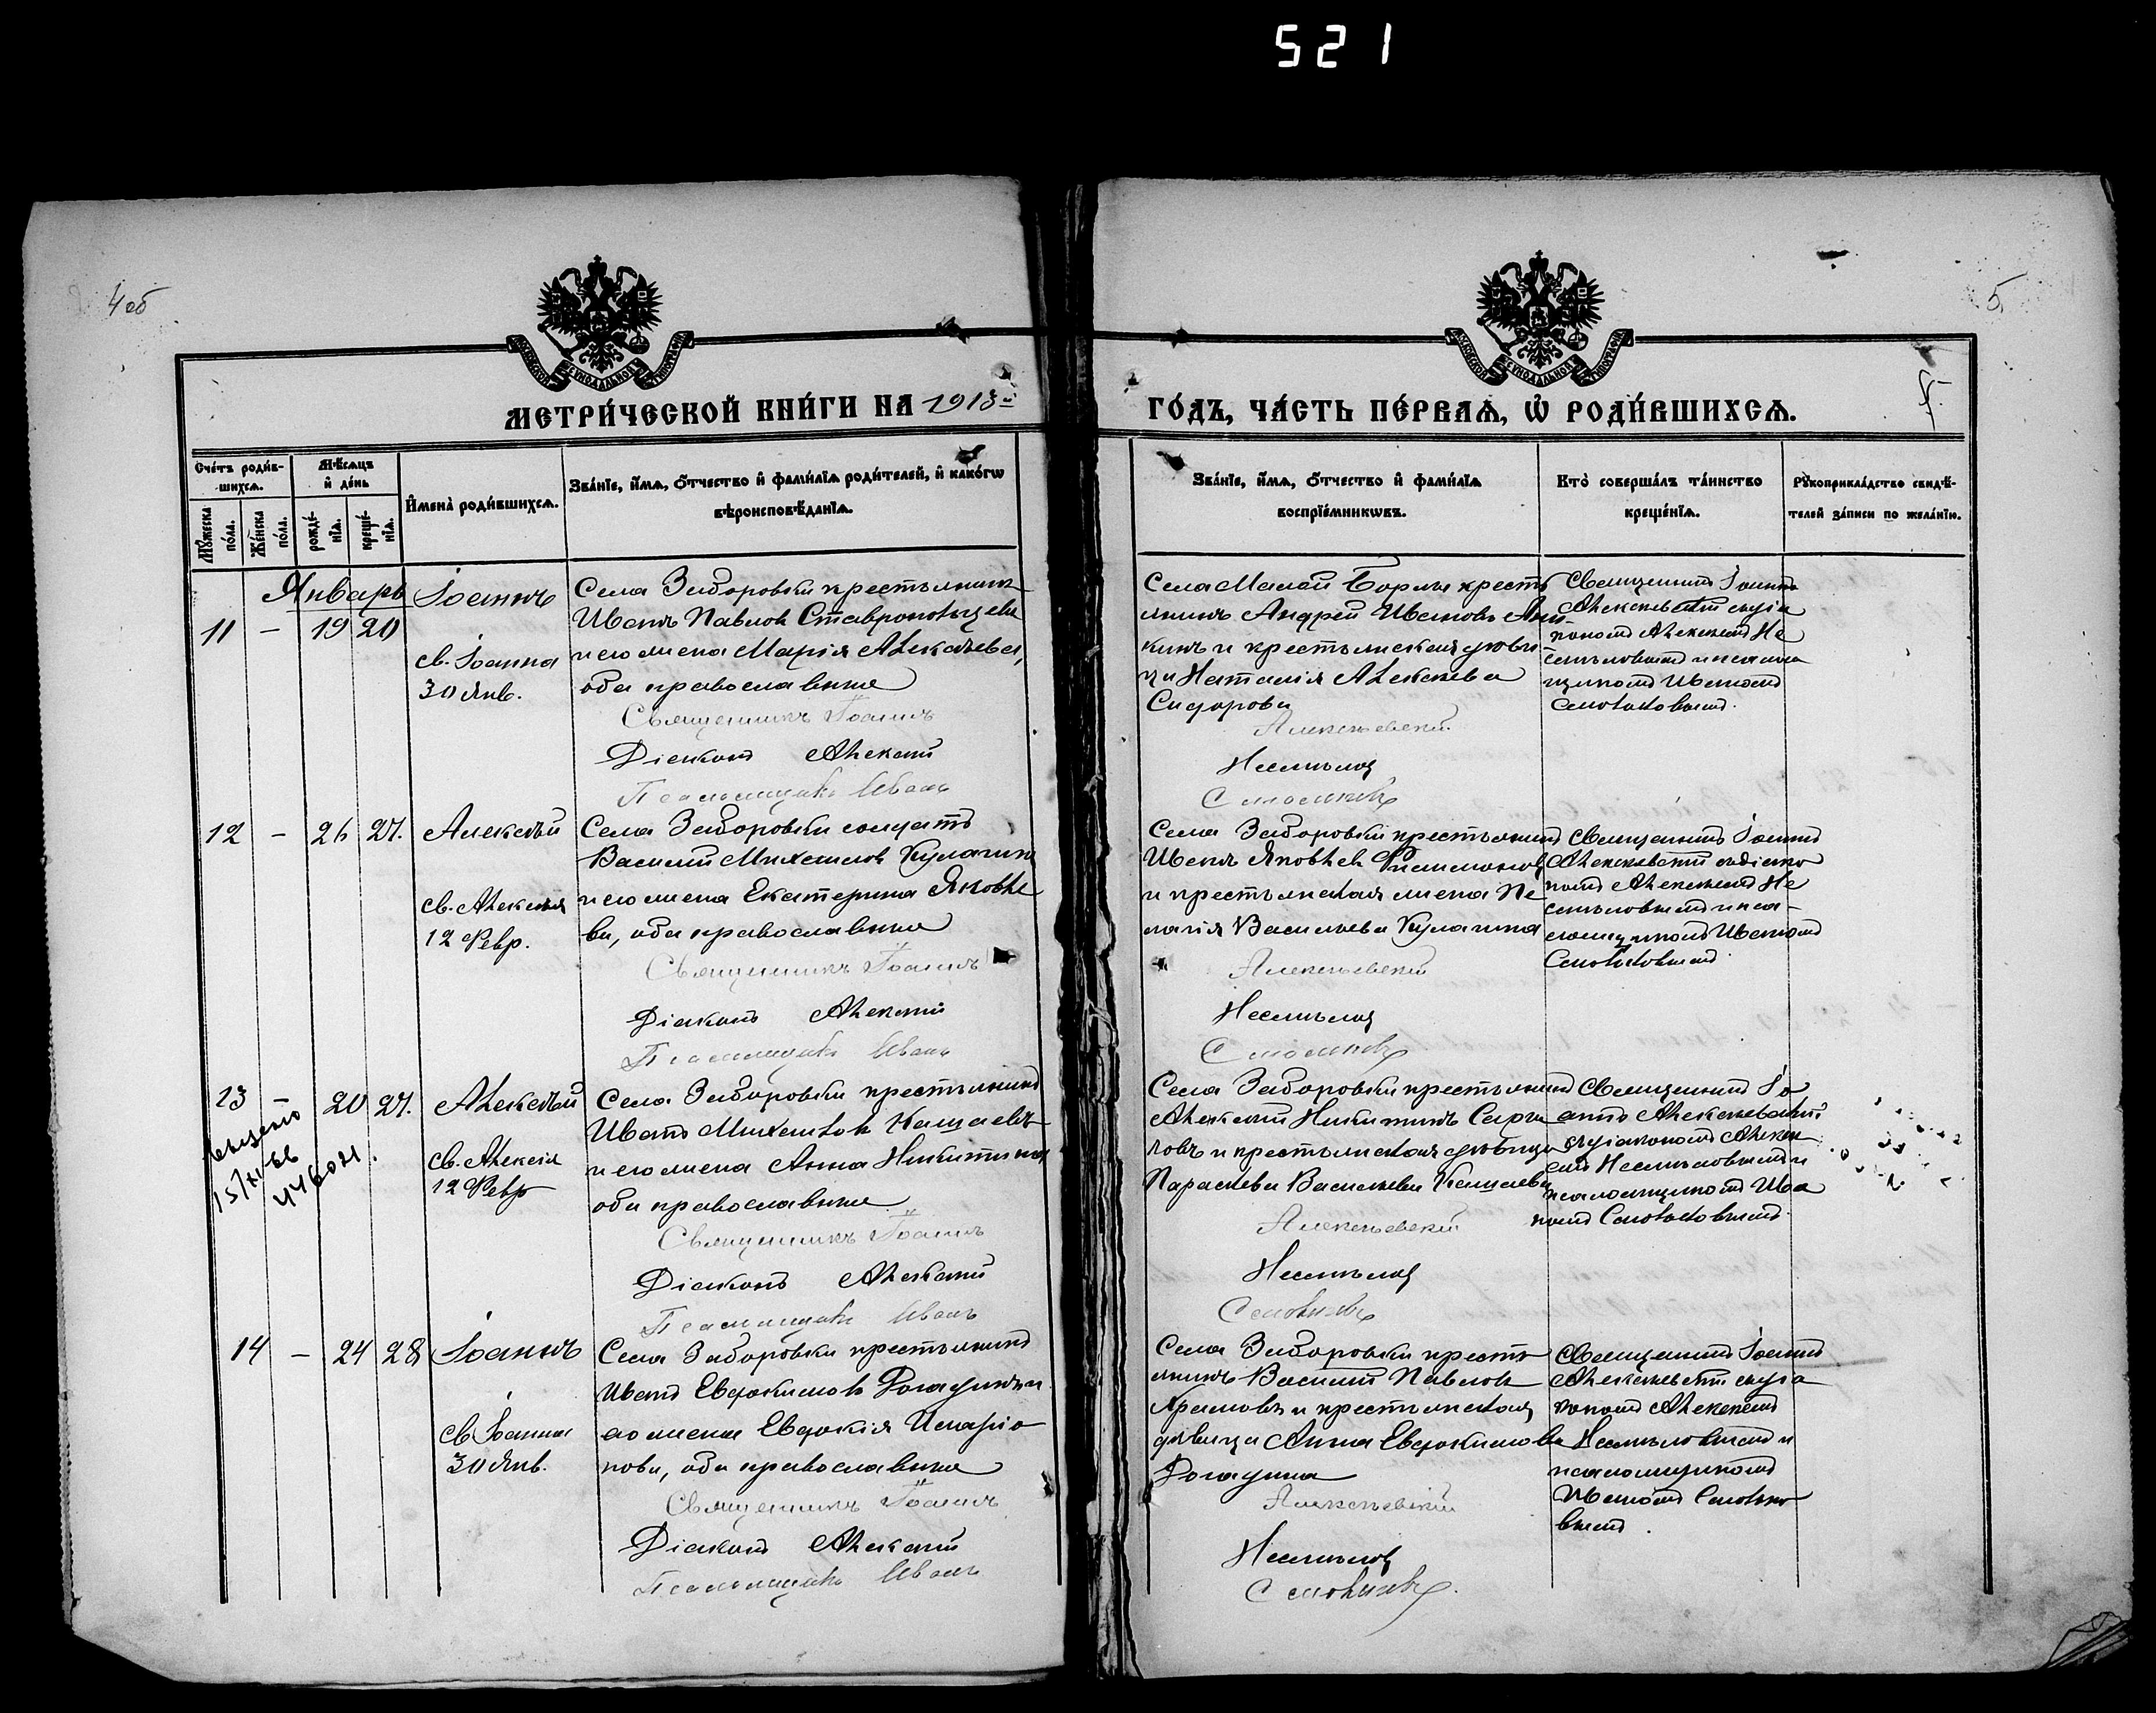 521
4 об
5
МЕТРИ́ЧЕСКОЙ КНИ́ГИ НА 1913й
ГО́ДЪ, ЧА́СТЬ ПЕ́РВАѦ, Ѡ҆ РОДИ́ВШИХСѦ.
5.
Сче́тъ роди́в-
шихсѧ.
Мѣ́сѧцъ
и҆ де́нь
Мꙋ́жеска
по́ла.
Же́нска
по́ла.
рожде́-
нїѧ.
креще́-
нїѧ.
И҆мена̀ роди́вшихсѧ.
Зва́нїе, и҆́мѧ, ѻ҆́тчество и҆ фами́лїѧ роди́телей, и҆ како́гѡ
вѣроисповѣ́данїѧ.
Зва́нїе, и҆́мѧ, ѻ҆́тчество и҆ фами́лїѧ
воспрїе́мникѡвъ.
Кто̀ соверша́лъ та́инство
креще́нїѧ.
Рꙋкоприкла́дство свидѣ́-
телей за́писи по жела́нїю.
Январь
11 — 19 20
Іоаннъ
св. Іоанна
30 Янв.
Села Заборовки крестьянинъ
Иванъ Павлов Ставропольцевъ
и его жена Марія Алексѣева,
оба православные
Священникъ Іоаннъ
Діаконъ Алексѣй
Псаломщикъ Иванъ
Села Малой Борлы кресть
янинъ Андрей Ивановъ
кинъ и крестьянская дѣви
ца Наталія Алексѣева
Сидорова
Алексѣевскій
Несмѣловъ
Смольковъ
Священникъ Іоаннъ
Алексѣевскій съ діа
кономъ Алексѣемъ Не
смѣловымъ и псалом
щикомъ Иваномъ
Смольковымъ.
12 — 26 27.
Алексѣй
св. Алексія
12 Февр.
Села Заборовки солдатъ
Василій Михаилов Кулагинъ
и его жена Екатерина Яковле
ва, оба православные
Священникъ Іоаннъ
Діаконъ Алексѣй
Псаломщикъ Иванъ
Села Заборовки крестьянинъ
Иванъ Яковлев Филимоновъ
и крестьянская жена Пе
лагія Васильева Кулагина
Алексѣевскій
Несмѣловъ
Смольковъ
Священникъ Іоаннъ
Алексѣевскій съ діако
номъ Алексѣемъ Не
смѣловымъ и пса-
ломщикомъ Иваномъ
Смольковымъ.
13 20 27.
15/XI 66
Алексѣй
св. Алексія
12 Февр
Села Заборовки крестьянинъ
Иванъ Михаилов Кащаевъ
и его жена Анна Никитина
оба православные
Священникъ Іоаннъ
Діаконъ Алексѣй
Псаломщикъ Иванъ
Села Заборовки крестьянинъ
Алексѣй Никитинъ
и крестьянская дѣвица
Параскева Васильева Кащаева
Алексѣевскій
Несмѣловъ
Смольковъ
Священникъ Іо
аннъ Алексѣевскій
съ діакономъ Алексѣ
емъ Несмѣловымъ и
псаломщикомъ Ива
номъ Смольковымъ.
14 — 24 28
Іоаннъ
св Іоанна
30 Янв.
Села Заборовки крестьянинъ
Иванъ Евдокимов Рогадинъ и
его жена Евдокія Иларіо
нова, оба православные
Священникъ Іоаннъ
Діаконъ Алексѣй
Псаломщикъ Иванъ
Села Заборовки кресть
янинъ Василій Павлов
и крестьянская
дѣвица Анна Евдокимова
Рогадина
Алексѣевскій
Несмѣловъ
Смольковъ.
Священникъ Іоаннъ
Алексѣевскій съ діа
кономъ Алексѣемъ
Несмѣловымъ и
псаломщикомъ
Иваномъ Смолько
вымъ.